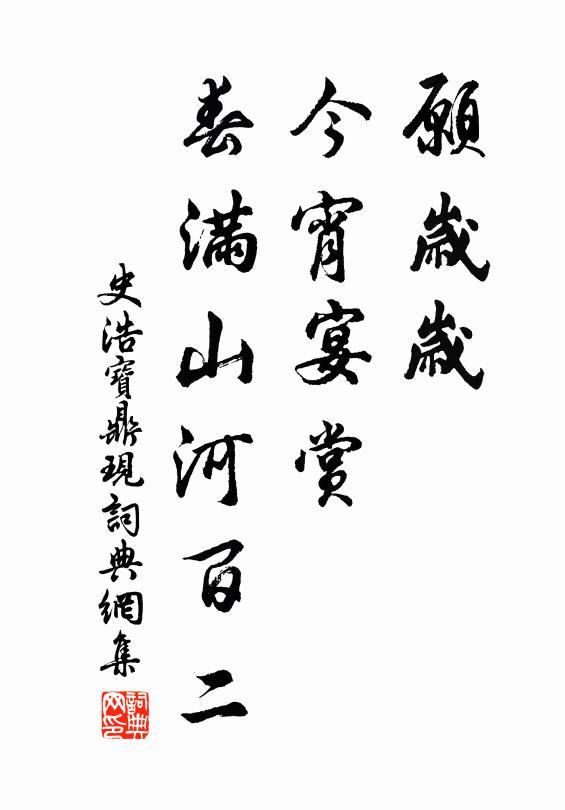 願歲歲
今宵宴賞
春滿山河百二
史浩寶鼎現詞典網集
詞典网印